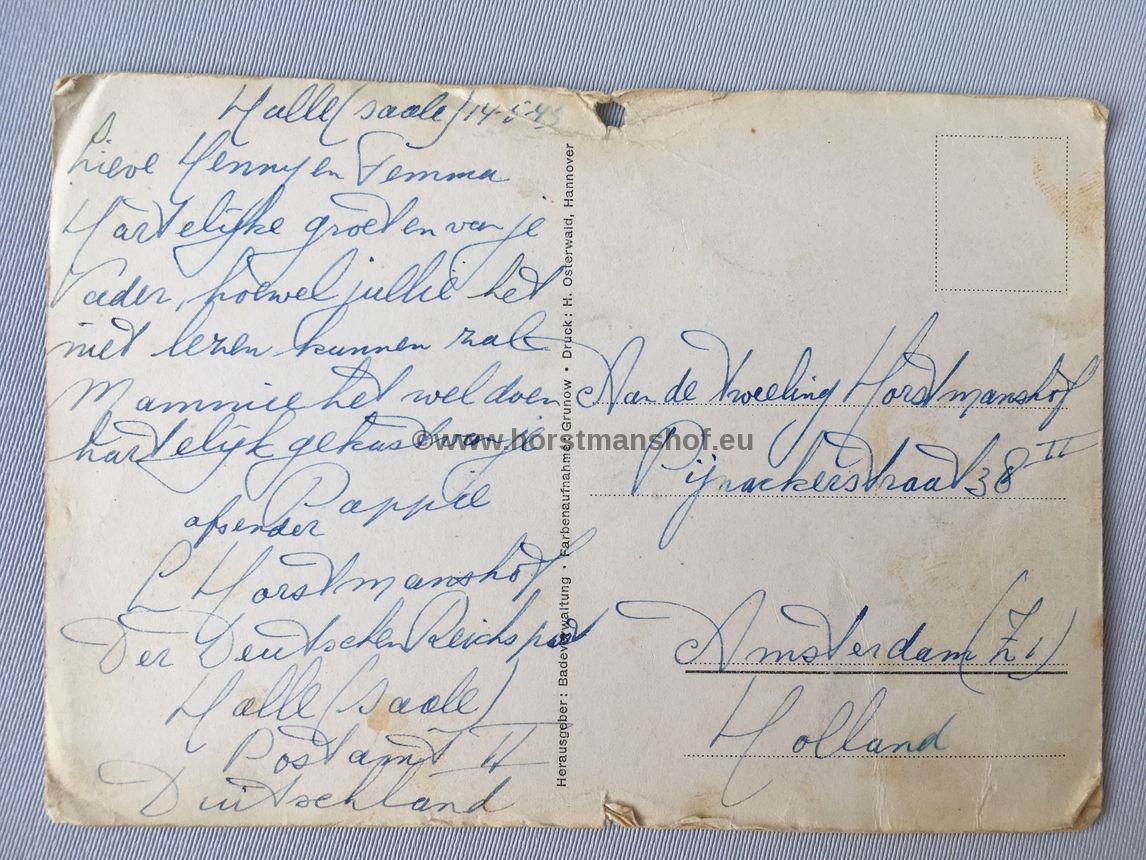 Halle (saale) 14-5-43
Lieve Henny en Femma
Hartelijke groeten van je
Vader, hoewel jullie het
niet lezen kunnen zal
Mammie het wel doen
hartelijk gekust van je
Pappie
afsender
L Horstmanshof
Der Deutschen Reichspost
Halle (saale)
Postamt II
Duitschland
Herausgeber: Badeverwaltung · Farbenaufnahme: Grunow · Druck: H. Osterwald, Hannover
Aan de tweeling Horstmanshof
Pijnackerstraat 38 II
Amsterdam (Z1)
Holland
©www.horstmanshof.eu